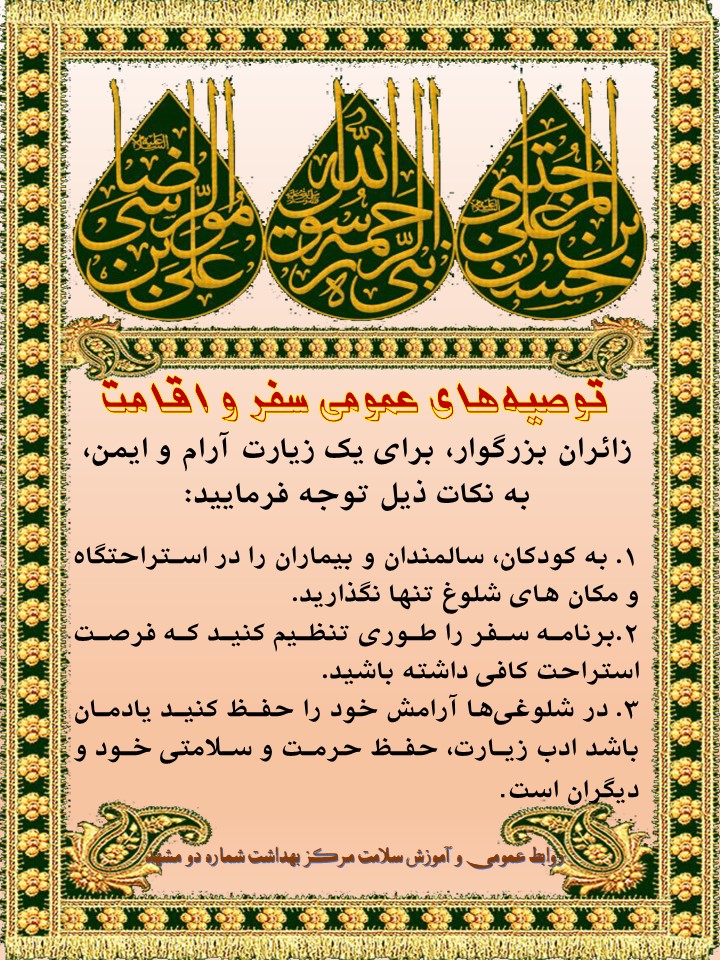 حسن بن علی المجتبی
علیه السلام
نبی الرحمه رسول الله
علی بن موسی الرضا
علیه السلام
توصیه‌های عمومی سفر و اقامت
زائران بزرگوار، برای یک زیارت آرام و ایمن،
به نکات ذیل توجه فرمایید:
۱. به کودکان، سالمندان و بیماران را در استراحتگاه
و مکان های شلوغ تنها نگذارید.
۲.برنامه سفر را طوری تنظیم کنید که فرصت
استراحت کافی داشته باشید.
۳. در شلوغی‌ها آرامش خود را حفظ کنید یادمان
باشد ادب زیارت، حفظ حرمت و سلامتی خود و
دیگران است.
روابط عمومی و آموزش سلامت مرکز بهداشت شماره دو مشهد